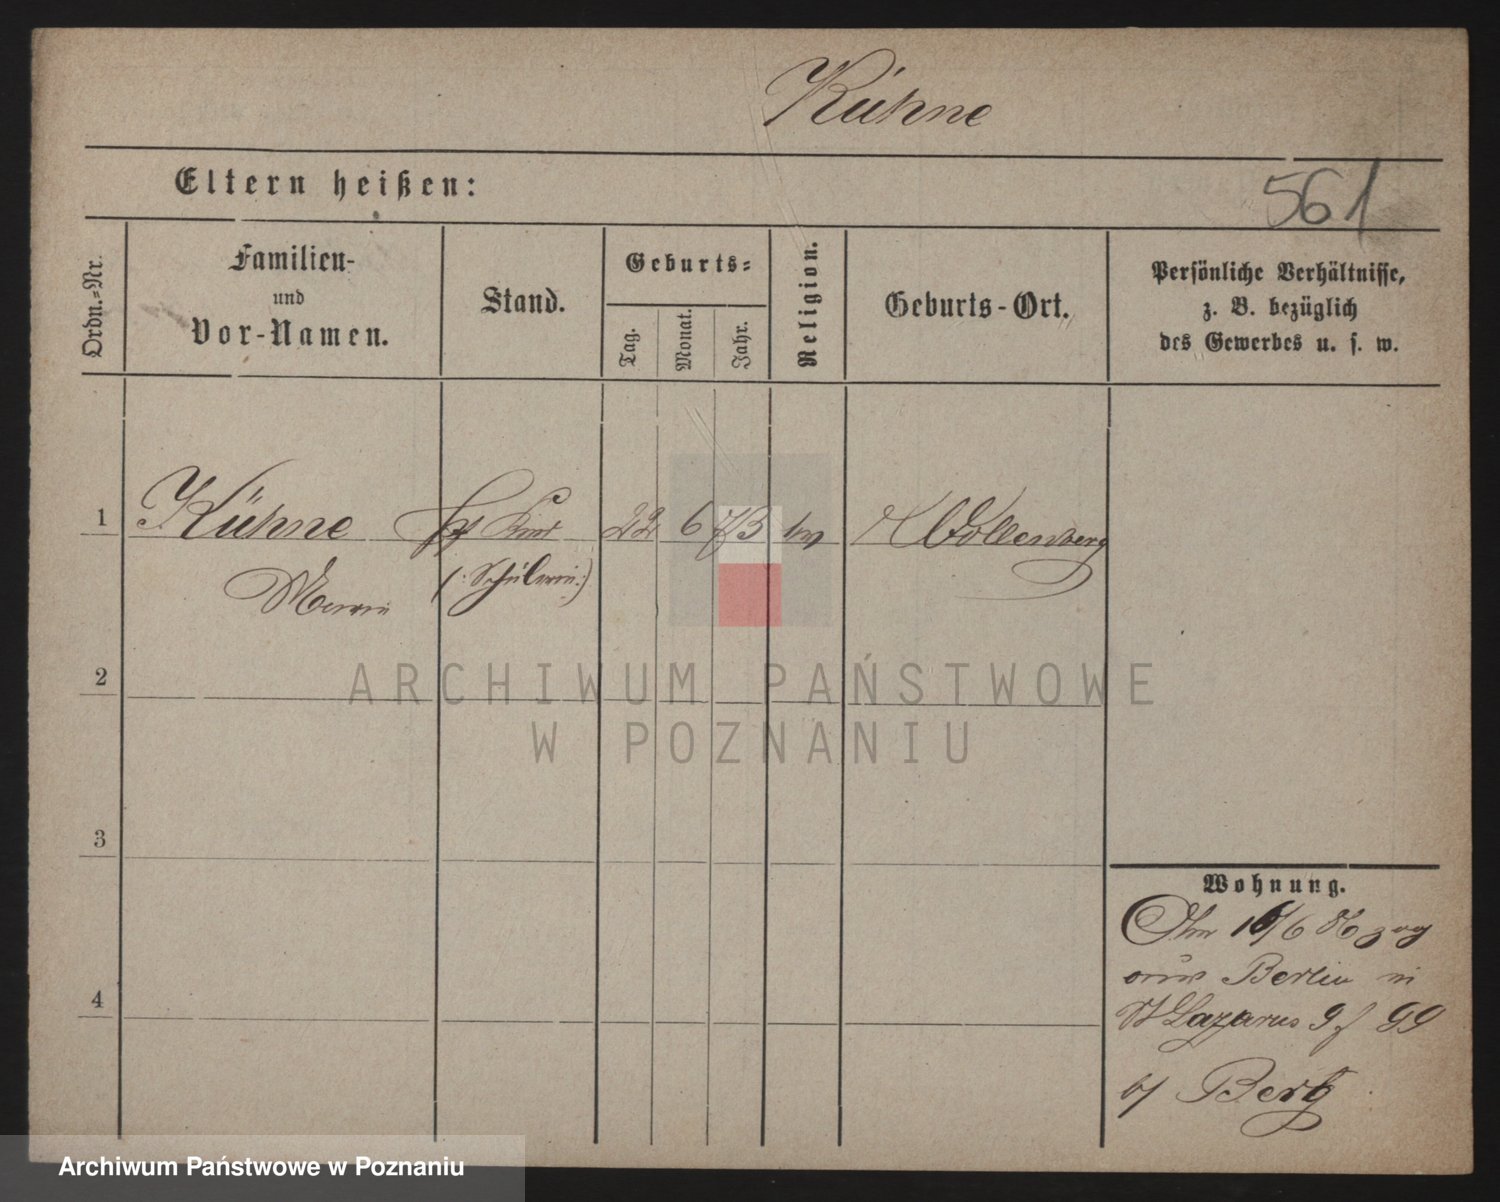 Kühne
Eltern heißen:
561
Ordn.-Nr.
Familien-
und
Vor-Namen.
Stand.
Geburts-
Tag.
Monat.
Jahr.
Religion.
Geburts-Ort.
Persönliche Verhältnisse,
z. B. bezüglich
des Gewerbes u. s. w.
1 Kühne 22 6 73 Wollenberg
2
3
4
Wohnung.
Berlin in
St Lazarus 99
b/ Berg
ARCHIWUM PAŃSTWOWE
W POZNANIU
Archiwum Państwowe w Poznaniu